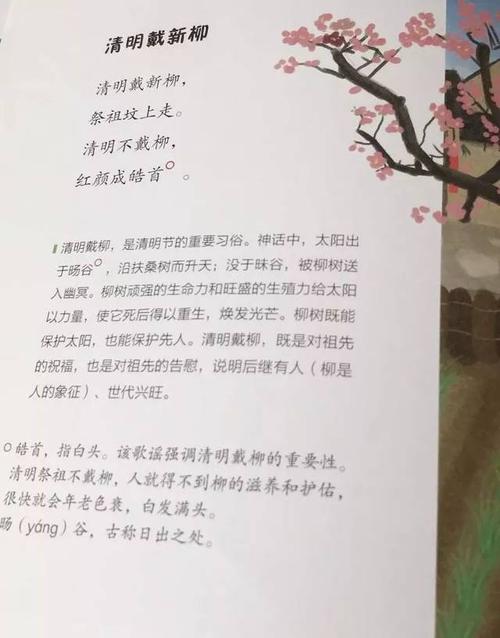 清明戴新柳
清明戴新柳，
祭祖坟上走。
清明不戴柳，
红颜成皓首○。
清明戴柳，是清明节的重要习俗。神话中，太阳出
于旸谷○，沿扶桑树而升天；没于昧谷，被柳树送
入幽冥。柳树顽强的生命力和旺盛的生殖力给太阳
以力量，使它死后得以重生，焕发光芒。柳树既能
保护太阳，也能保护先人。清明戴柳，既是对祖先
的祝福，也是对祖先的告慰，说明后继有人（柳是
人的象征）、世代兴旺。
○皓首，指白头。该歌谣强调清明戴柳的重要性。
清明祭祖不戴柳，人就得不到柳的滋养和护佑，
很快就会年老色衰，白发满头。
旸（yáng）谷，古称日出之处。